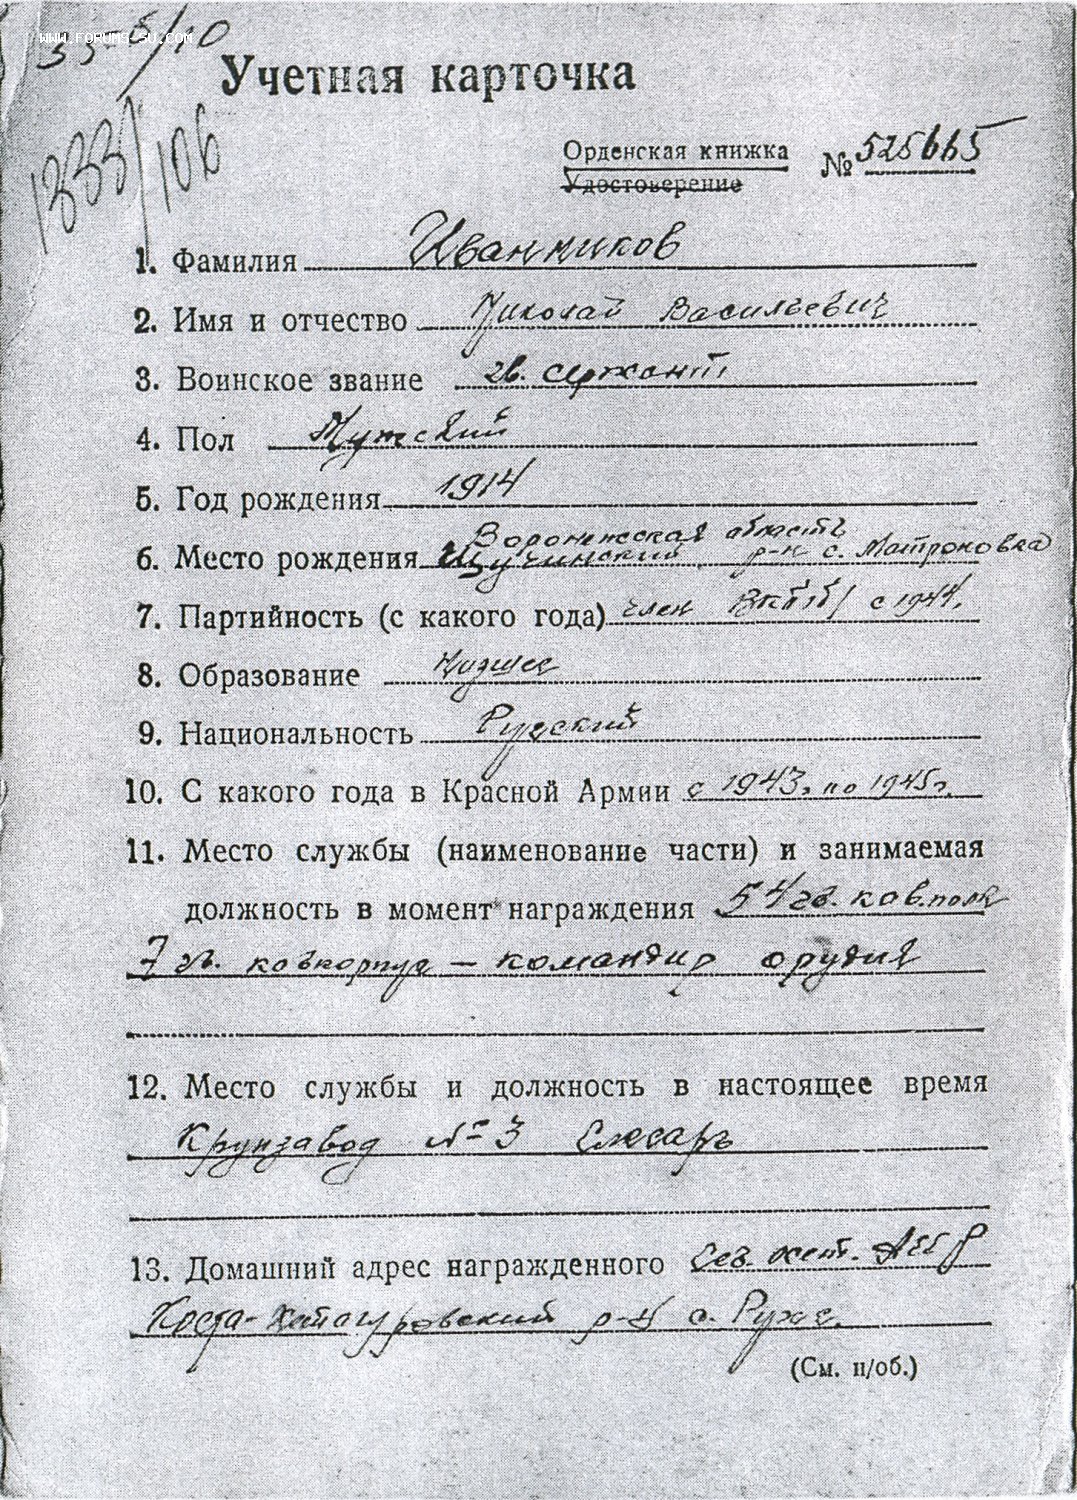 WWW.FORUMS-SU.COM
Учетная карточка
1333/106
Орденская книжка № 525665
Удостоверение
1. Фамилия Иванников
2. Имя и отчество Николай Васильевич
3. Воинское звание гв. сержант
4. Пол Мужской
5. Год рождения 1914
Воронежская область
6. Место рождения Щучинский р-н с. Матроновка
7. Партийность (с какого года) член ВКП(б) с 1944.
8. Образование Низшее
9. Национальность Русский
10. С какого года в Красной Армии с 1943 по 1945г.
11. Место службы (наименование части) и занимаемая
должность в момент награждения 54 гв. кав. полк
7 гв. кавкорпуса — командир орудия
12. Место службы и должность в настоящее время
Крупзавод № 3 Слесарь
13. Домашний адрес награжденного Сев. осет. АССР
Коста-Хетагуровский р-н с.
(См. н/об.)